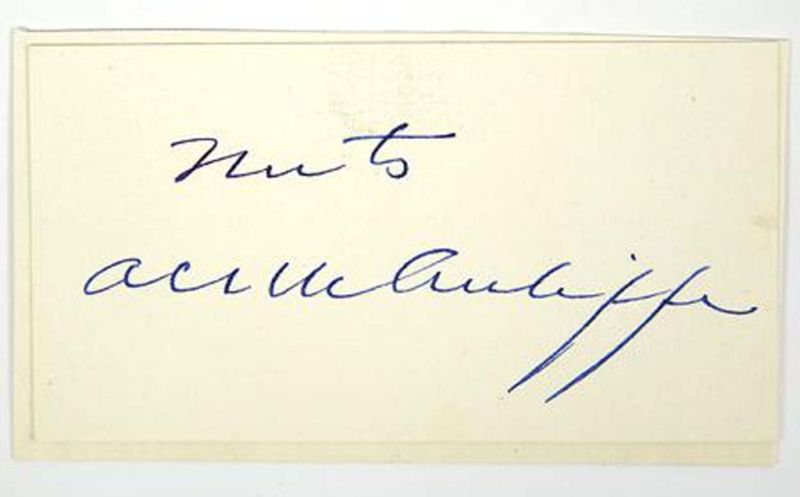 Nuts
A C McAuliffe